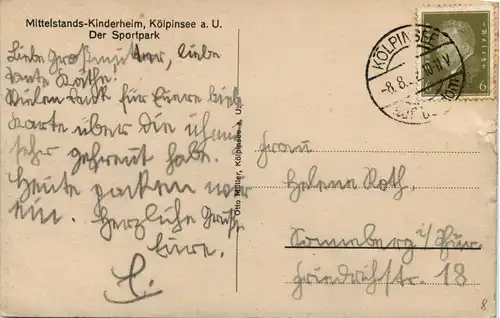 Mittelstands-Kinderheim, Kölpinsee a. U.
Der Sportpark
Liebe Großmutter, liebe
Tante Käthe.
Vielen Dank für Euere liebe
Karte über die ich mich
sehr gefreut habe.
Heute packen wir
ein. Herzliche Grüße
Eure.
E.
Otto Müller, Kölpinsee a. U.
KÖLPINSEE
-8.8. 10-11 V
6
Frau
Helene Roth.
Sonneberg i/Thür
Friedrichstr. 18
8